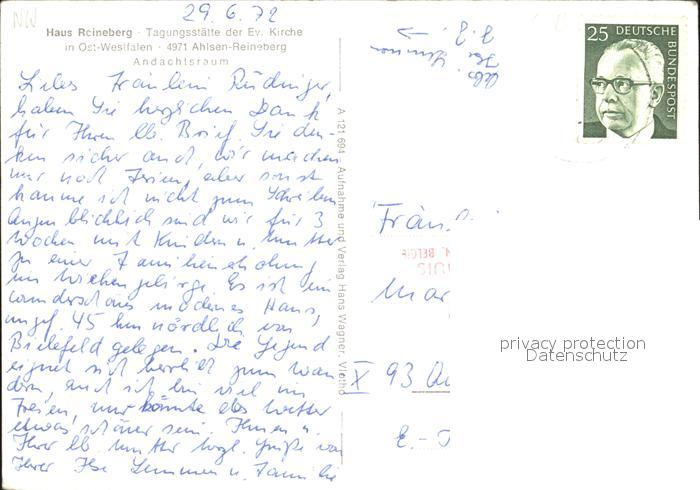 NW
29.6.72
Haus Reineberg · Tagungsstätte der Ev. Kirche
in Ost-Westfalen · 4971 Ahlsen-Reineberg
Andachtsraum
Liebes Fräulein Rüdinger,
haben Sie herzlichen Dank
für Ihren lb. Brief. Sie den-
ken sicher auch, wir machen
nur noch Ferien, aber sonst
komme ich nicht zum Schreiben
Augenblicklich sind wir für 3
Wochen mit Kindern u. Mutter
zu einer Familienerholung
im Wiehengebirge. Es ist ein
wunderschönes modernes Haus,
ungef. 45 km nördlich von
Bielefeld gelegen. Die Gegend
eignet sich herrlich zum Wan
dern, auch ich bin viel im
Freien, nur könnte das Wetter
etwas schöner sein. Ihnen u.
Ihrer lb. Mutter herzl. Grüße von
Ihrer Ilse Lemmen u. Familie
A 121 694 Aufnahme und Verlag Hans Wagner, Vlotho
Abs.
Ilse
z. Z.
25 DEUTSCHE
BUNDESPOST
Fräu.
Mar
X 93
E.-
privacy protection
Datenschutz